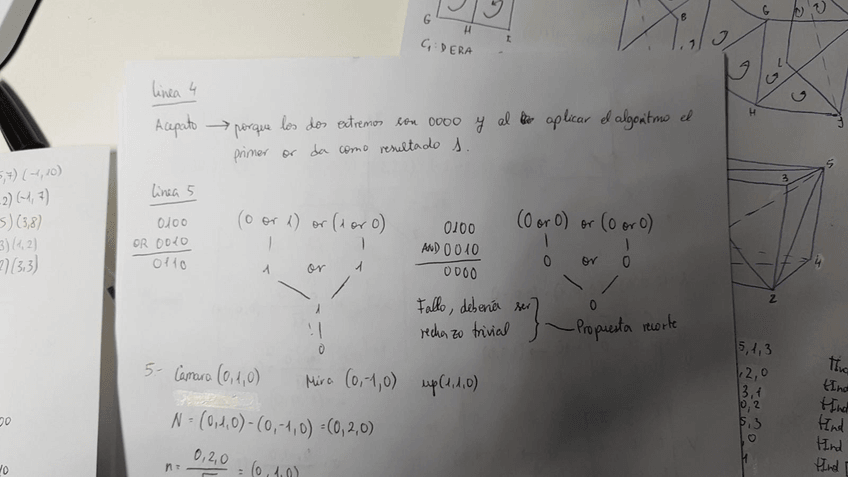 G
H
I
G: DERA
B
G
L
H
J
3
5
4
2
Linea 4
Acepato → porque los dos extremos son 0000 y al aplicar el algoritmo el
primer or da como resultado 1.
Linea 5
0100
OR 0010
0110
(0 or 1) or (1 or 0)
1 or 1
1
!
0
0100
AND 0010
0000
(0 or 0) or (0 or 0)
0 or 0
0
Fallo, debería ser
rechazo trivial
Propuesta recorte
5.- Camara (0,1,0) Mira (0,-1,0) up(1,1,0)
N = (0,1,0)-(0,-1,0) = (0,2,0)
n = 0,2,0 = (0,1,0)
,7) (-1,10)
2) (-1,7)
5) (3,8)
3) (1,2)
) (3,3)
00
10
5,1,3
,2,0
3,1
0,2
5,3
,0
1